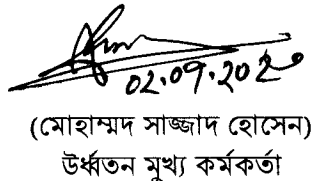 02.09.202
(মোহাম্মদ সাজ্জাদ হোসেন)
উর্ধ্বতন মুখ্য কর্মকর্তা